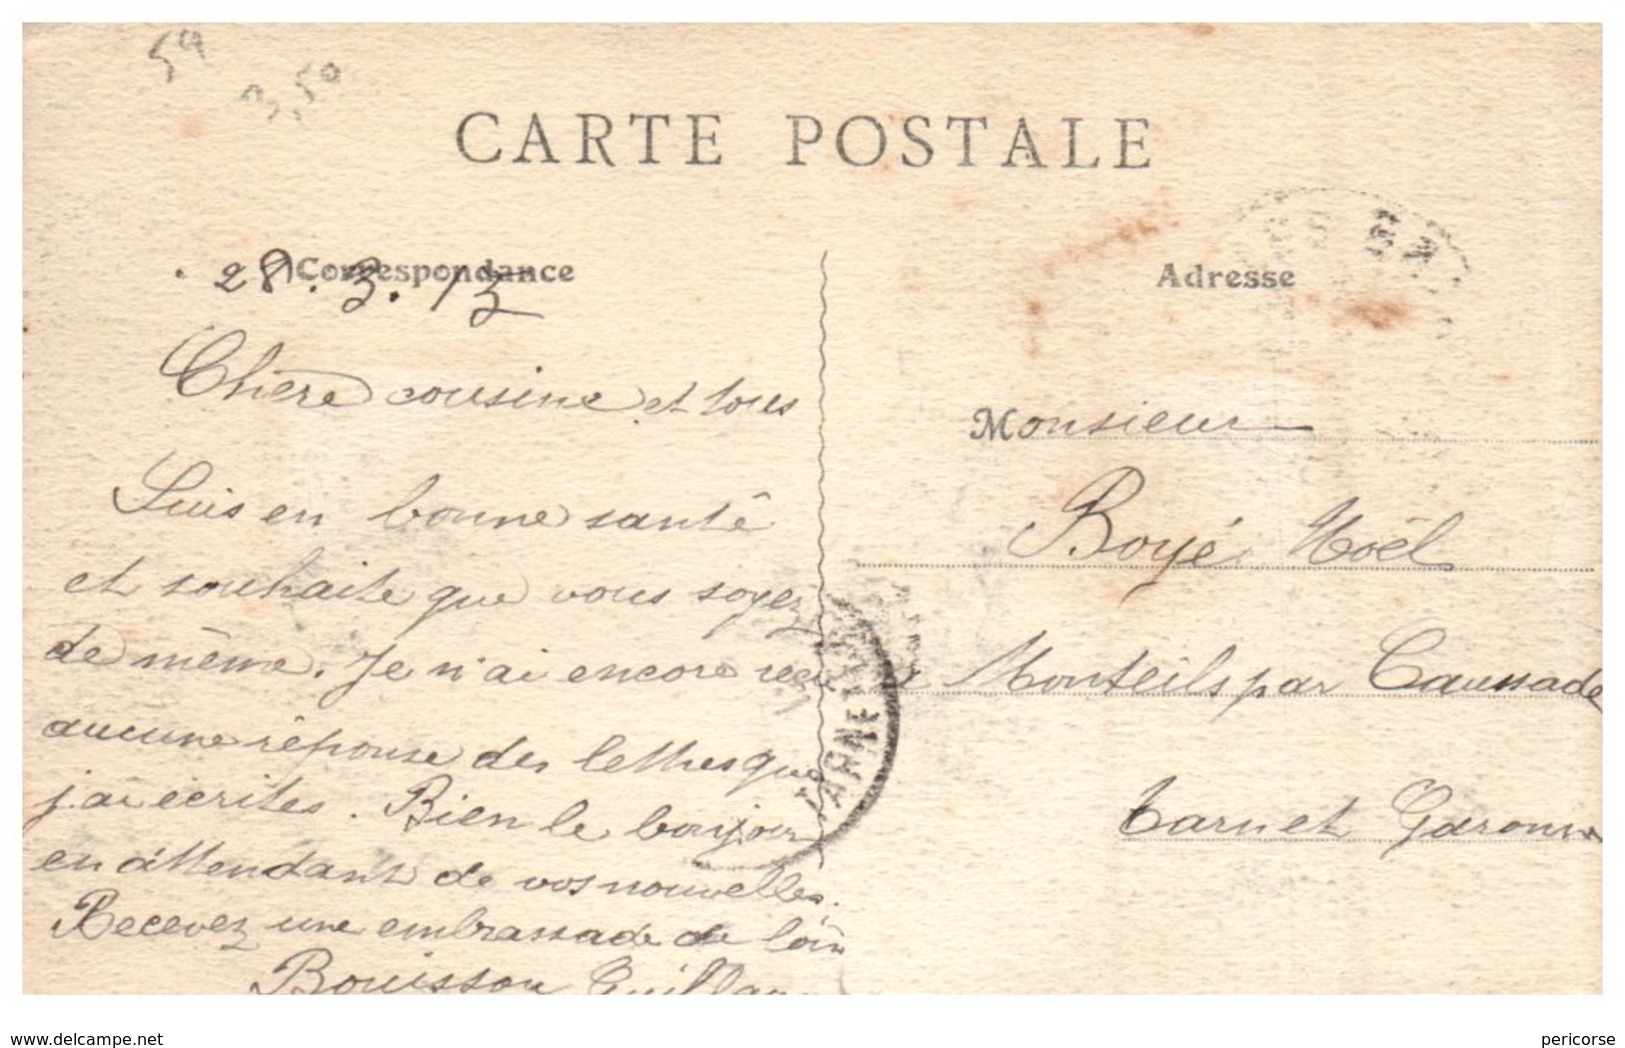 59
3,50
CARTE POSTALE
Correspondance
Adresse
28.3.13
Chère cousine et tous
Suis en bonne santé
et souhaite que vous soyez
de même. Je n'ai encore reçu
aucune réponse des lettres que
j'ai écrites. Bien le bonjour
en attendant de vos nouvelles.
Recevez une embrassade de loin
Bouisson
Monsieur
Boyé Noël
Monteils par Caussade
Tarn et Garonne
TARN ET
www.delcampe.net
pericorse